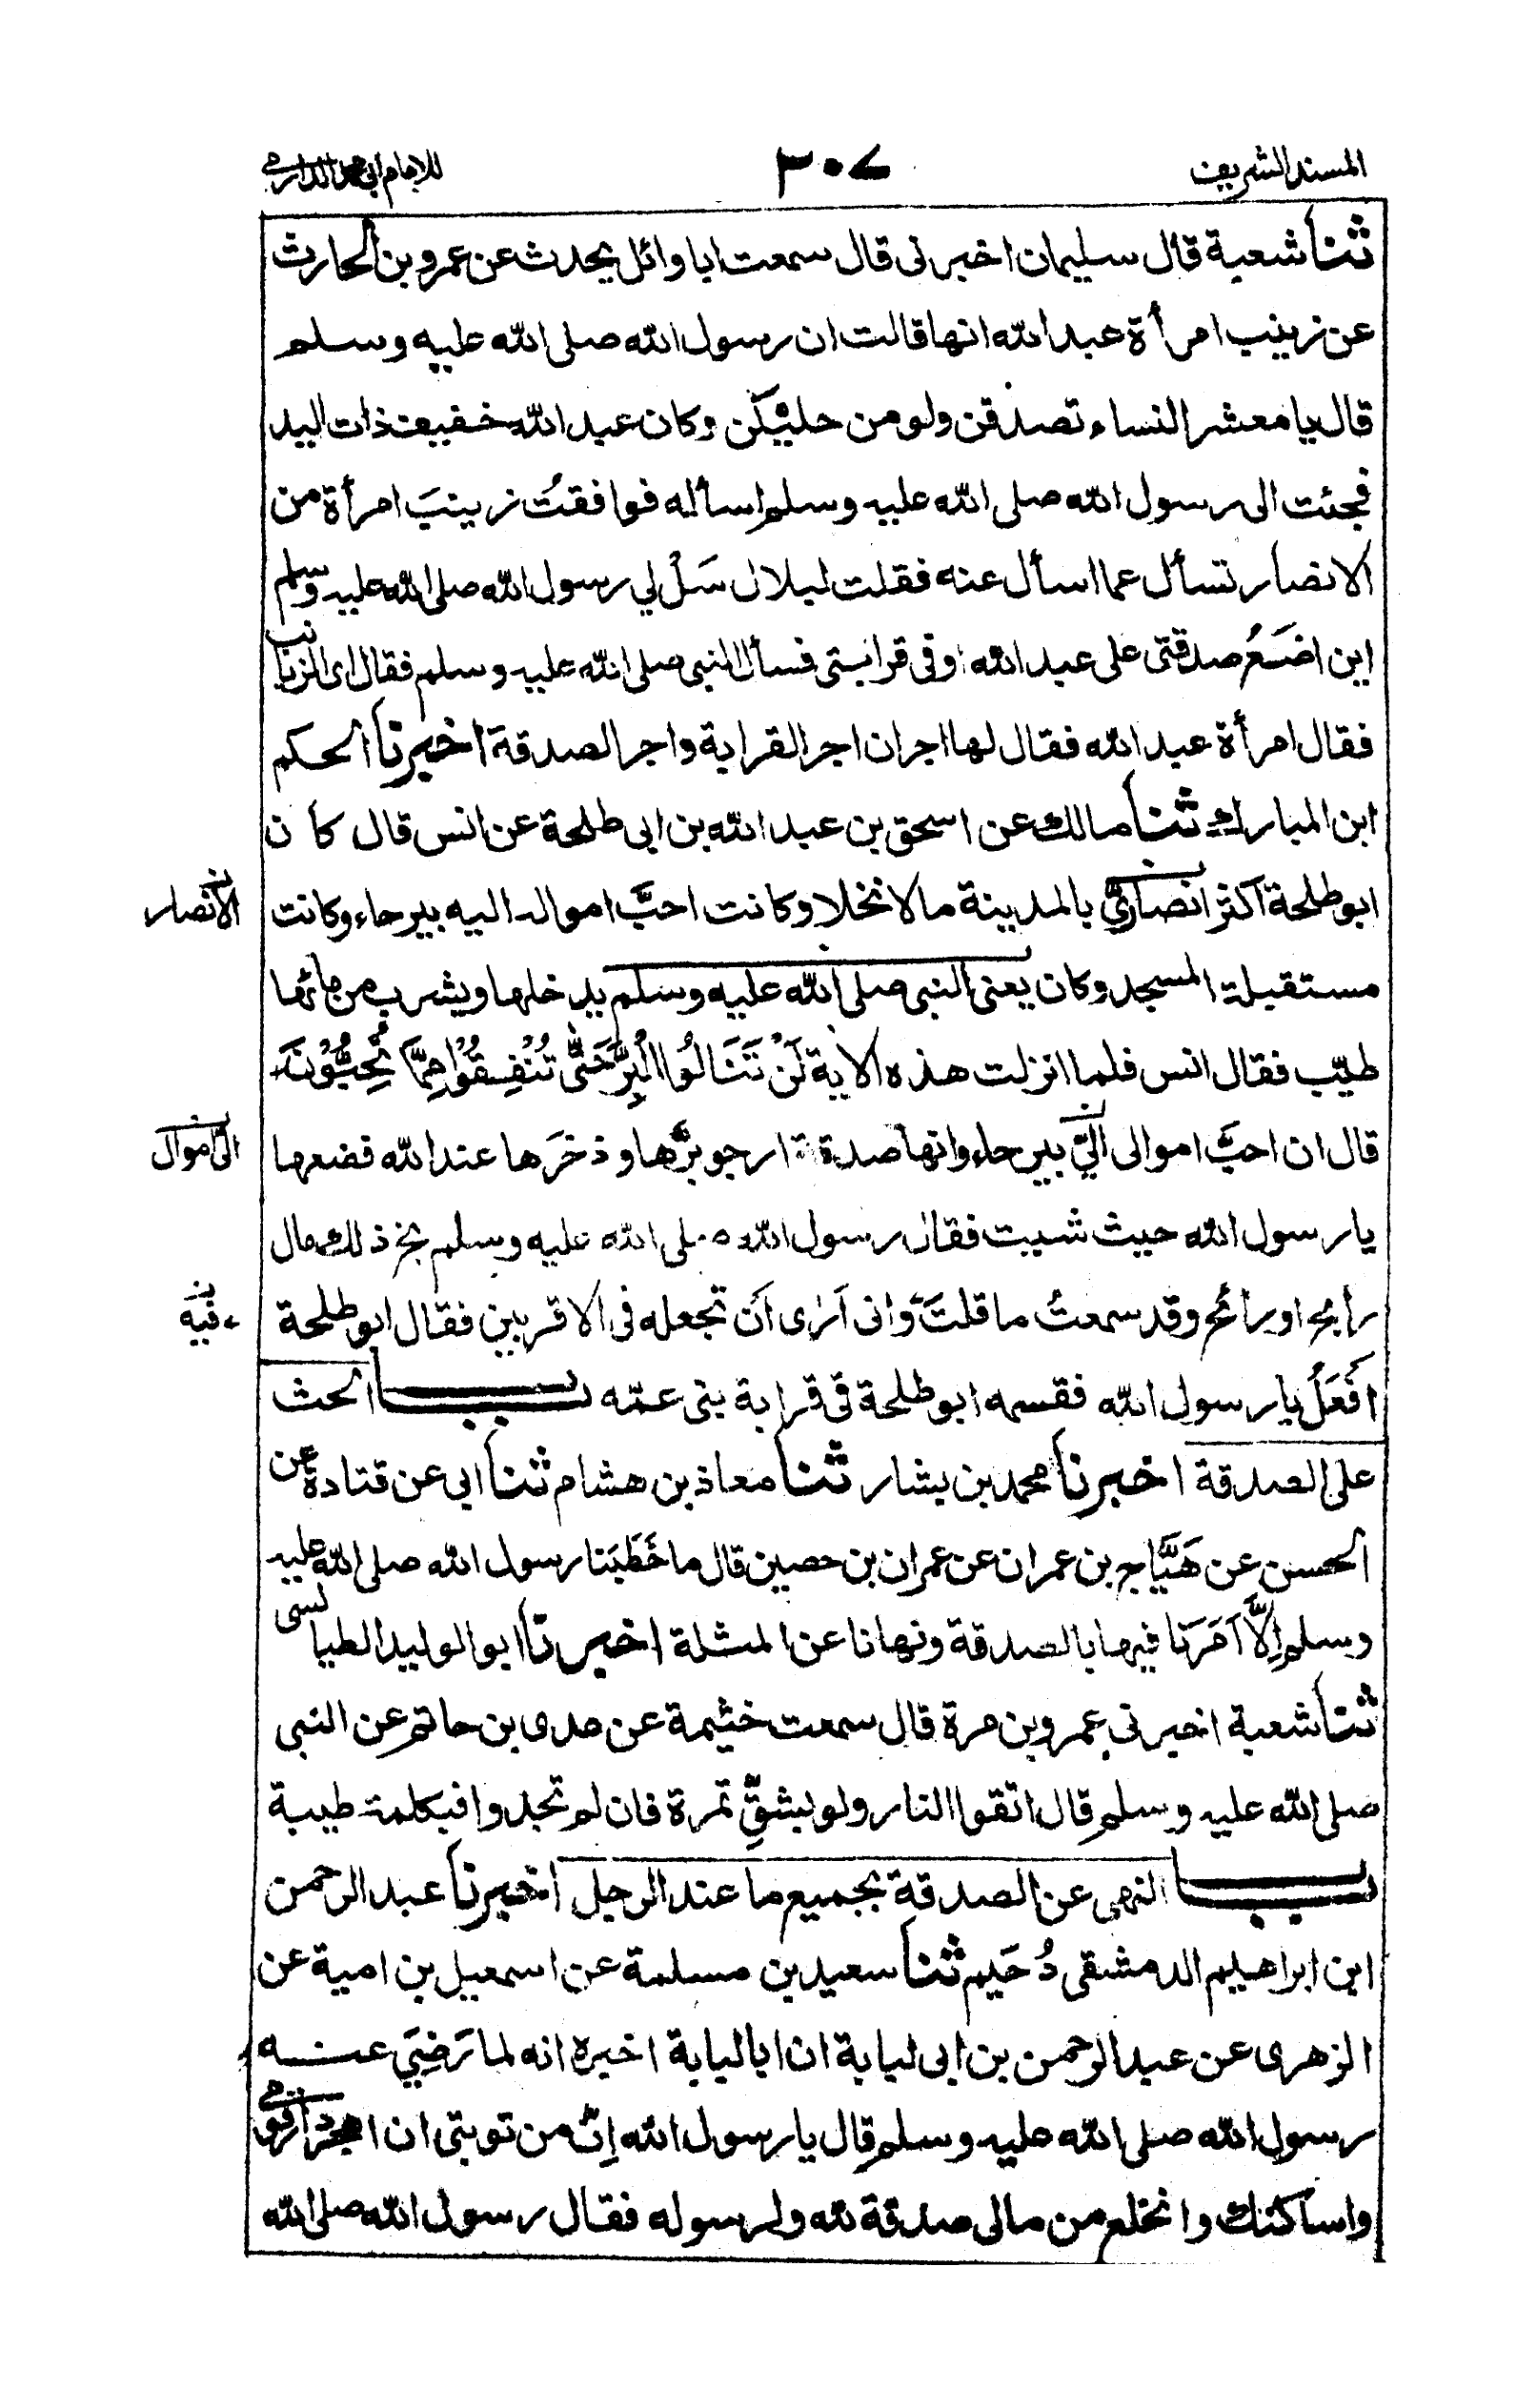 المسند الشريف
٣٠٧
للامام ابي محمد الدارمي
ثنا شعبة قال سليمان اخبرنى قال سمعت ابا وائل يحدث عن عمرو بن الحارث
عن زينب امرأة عبد الله انها قالت ان رسول الله صلى الله عليه وسلم
قال يا معشر النساء تصدقن ولو من حليّكن وكان عبد الله خفيف ذات اليد
فجئت الى رسول الله صلى الله عليه وسلم اسأله فوافقتُ زينبَ امرأة من
الانصار تسأل عما اسأل عنه فقلت لبلال سَلْ لي رسول الله صلى الله عليه وسلم
اين اضَعُ صدقتى على عبد الله اوفى قرابتى فسأل النبى صلى الله عليه وسلم فقال اى الزيانب
فقال امرأة عبد الله فقال لها اجران اجر القرابة واجر الصدقة اخبرنا الحكم
ابن المبارك ثنا مالك عن اسحق بن عبد الله بن ابى طلحة عن انس قال كان
ابو طلحة اكثر انصارىٍّ بالمدينة مالا نخلا وكانت احبَّ امواله اليه بيرحاء وكانت
الانصار
مستقبلة المسجد وكان يعنى النبى صلى الله عليه وسلم يدخلها ويشرب من مائها
طيّب فقال انس فلما انزلت هذه الاية لَنْ تَنَالُوا الْبِرَّ حَتّٰى تُنْفِقُوْا مِمَّا تُحِبُّوْنَ
قال ان احبَّ اموالى الىَّ بيرحاء وانها صدقة ارجو برَّها وذخرَها عند الله فضعها
الىّ اموال
يا رسول الله حيث شيت فقال رسول الله صلى الله عليه وسلم بخ ذلك مال
رابح او رائح وقد سمعتُ ما قلتَ وانى اَرٰى اَن تجعله فى الاقربين فقال ابو طلحة
فيه
اَفْعَلُ يا رسول الله فقسمه ابو طلحة فى قرابة بنى عمّه باب الحث
على الصدقة اخبرنا محمد بن بشار ثنا معاذ بن هشام ثنا ابى عن قتادة عن
الحسن عن هَيَّاج بن عمران عن عمران بن حصين قال ما خَطَبَنا رسول الله صلى الله عليه
وسلم اِلَّا اَمَرَنا فيها بالصدقة ونهانا عن المثلة اخبرنا ابو الوليد الطيالسى
ثنا شعبة اخبرنى عمرو بن مرة قال سمعت خيثمة عن عدى بن حاتم عن النبى
صلى الله عليه وسلم قال اتقوا النار ولو بشقّ تمرة فان لم تجدوا فبكلمة طيبة
باب النهى عن الصدقة بجميع ما عند الرجل اخبرنا عبد الرحمن
ابن ابراهيم الدمشقى دُحَيم ثنا سعيد بن مسلمة عن اسمعيل بن امية عن
الزهرى عن عبد الرحمن بن ابى لبابة ان ابا لبابة اخبره انه لما رَضِيَ عنه
رسول الله صلى الله عليه وسلم قال يا رسول الله اِنّ من توبتى ان اهجر دار قومى
واساكنك وانخلع من مالى صدقة لله ولرسوله فقال رسول الله صلى الله